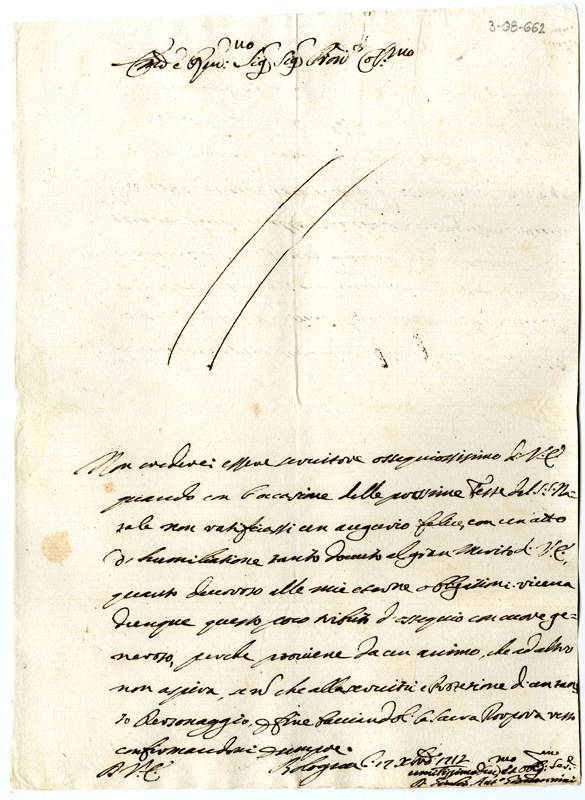 3-08-662
Em.º e Rev.: mo Sig. Sig. Pron. Col. mo
Non crederei essere servitore ossequiosissimo di V. E.
quando con l'occasione delle prossime Feste del SS. Na-
tale non ratificassi un augurio felice, con un atto
di humiliatione tanto dovuto al gran Merito di V. E.,
quanto decoroso alle mie eterne obligationi. riceva
dunque questo poco tributo d'ossequio con cuore ge-
neroso, perche proviene da un animo, che ad altro
non aspira, se no che alla servitù e Protezione di un tan-
to Personaggio, e fine facciendo la sacra Porpora resto
confirmandomi sempre.
D. V. E. Bologna li 17 Xbre 1712
umilissimo di mo et obl. mo Se. r